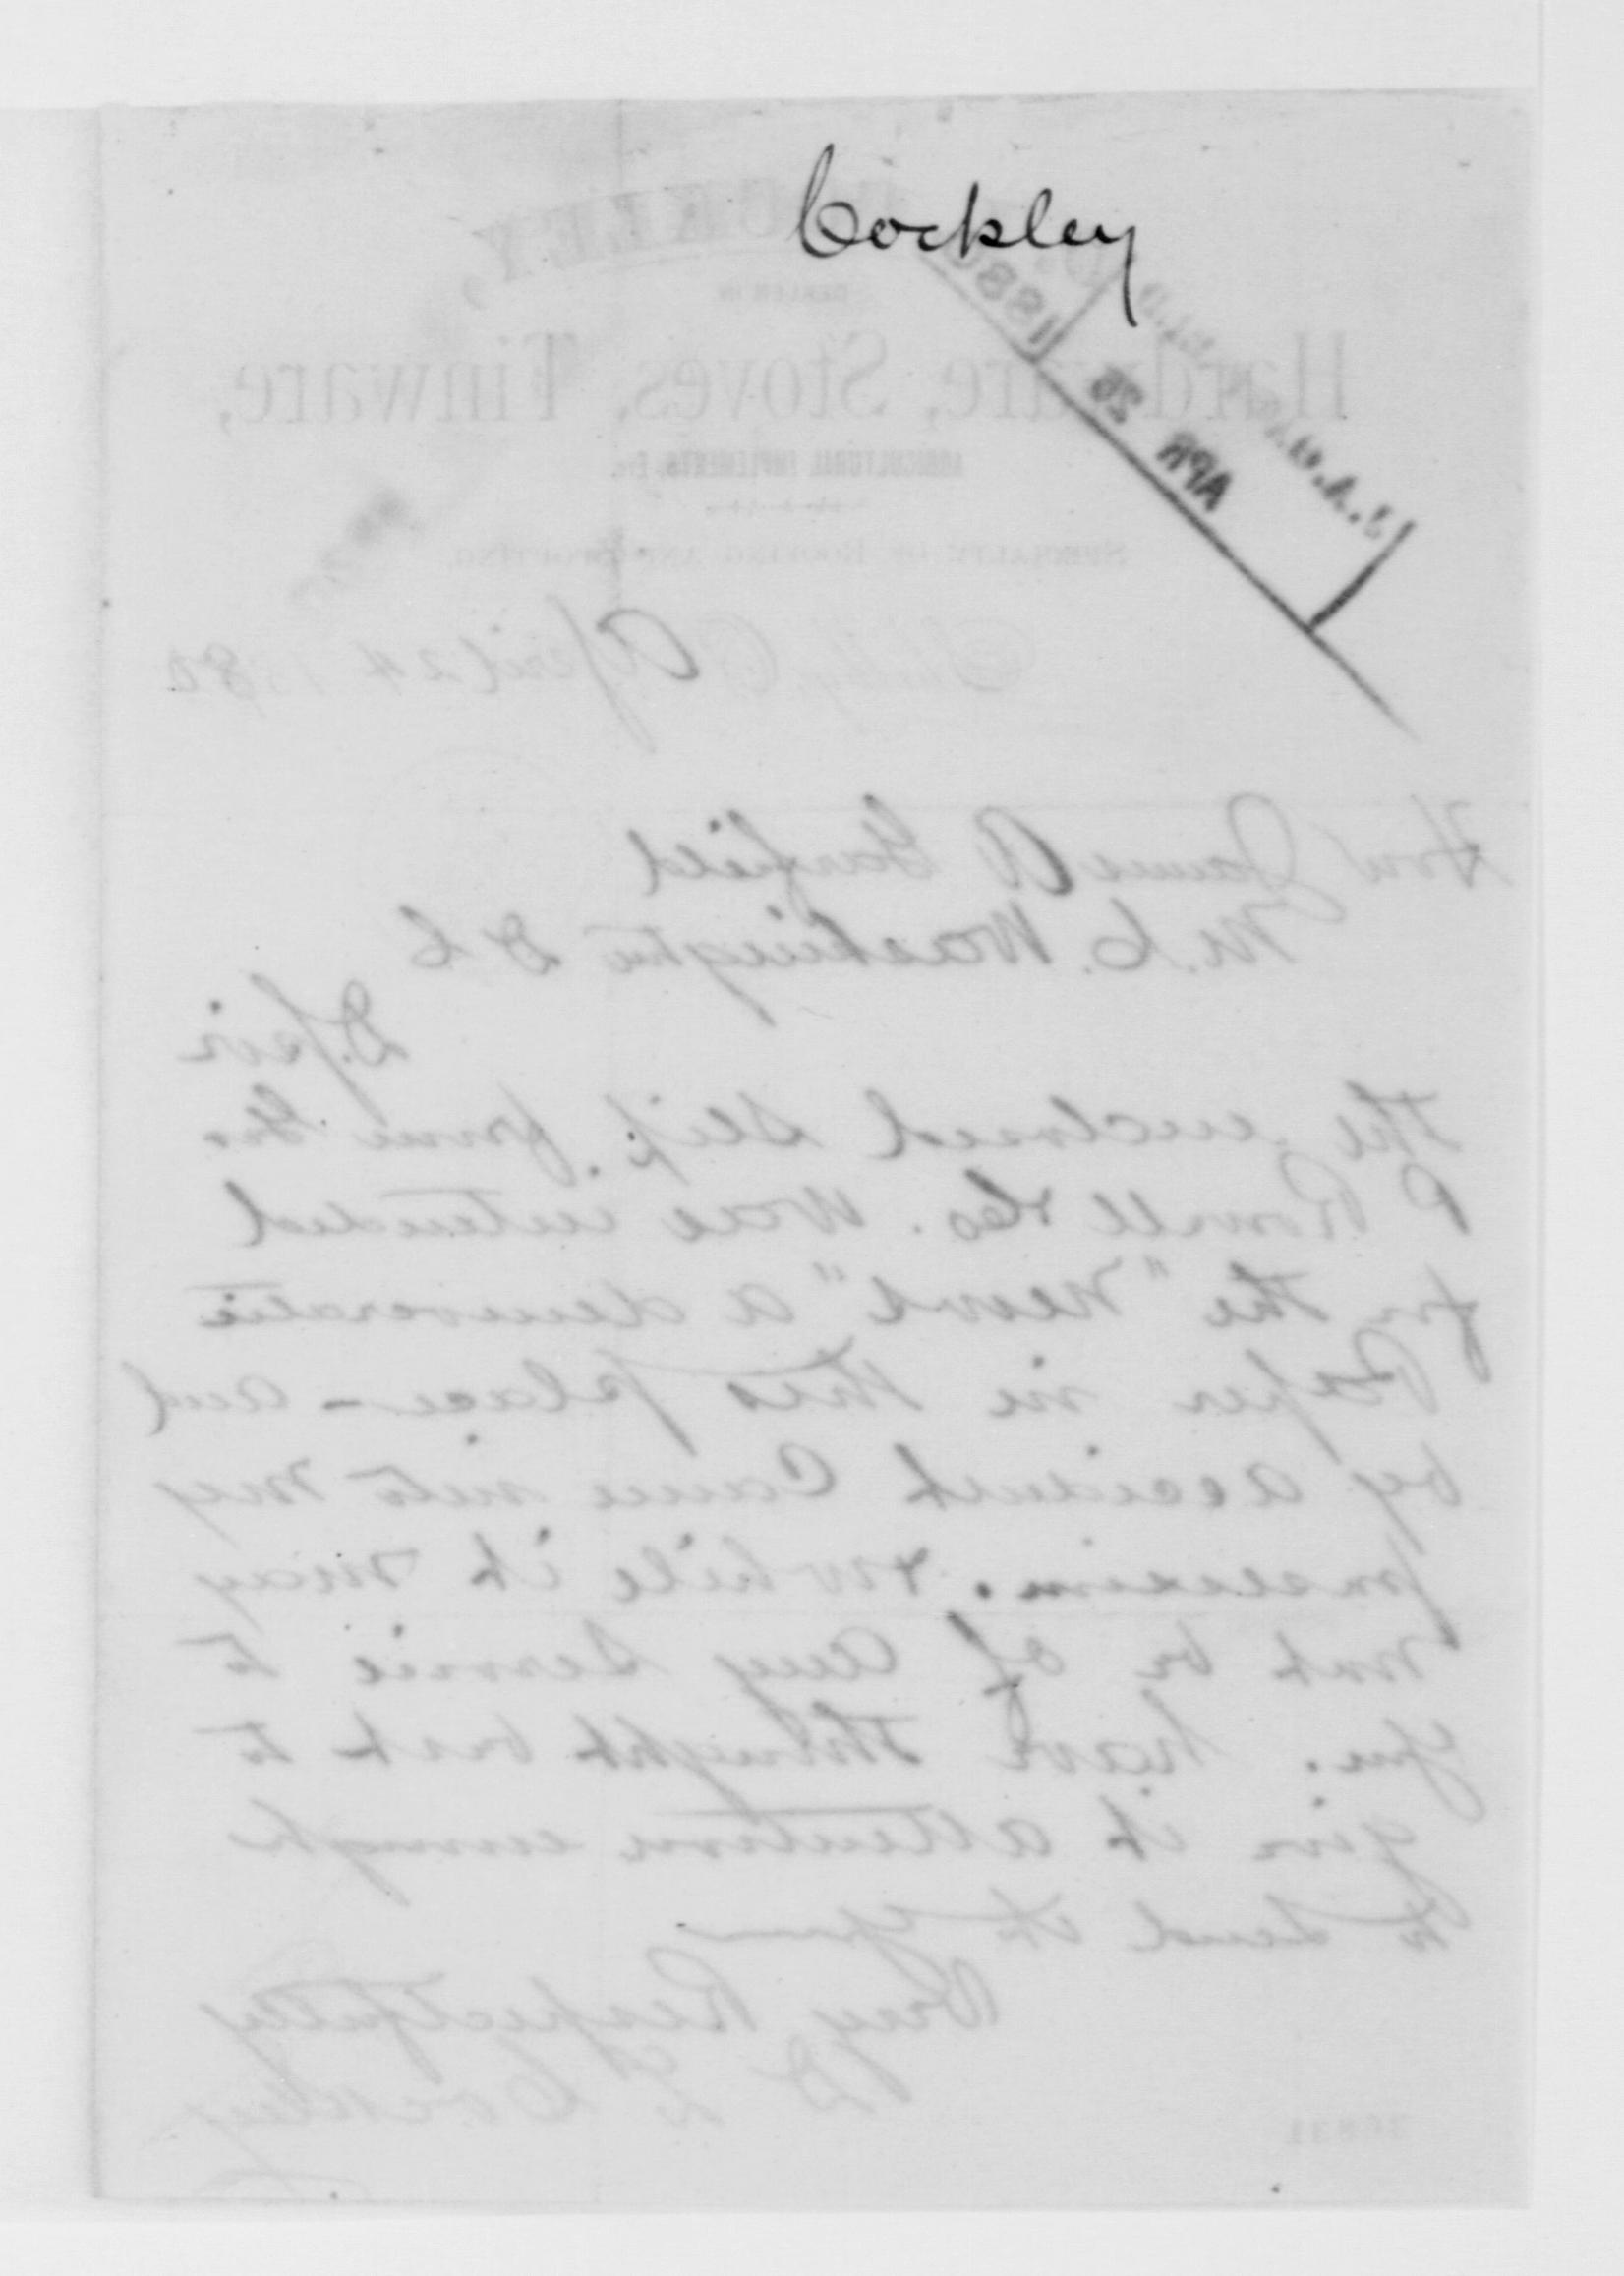 Cockley
COCKLEY,
DEALER IN
Hardware, Stoves, Tinware,
AGRICULTURAL IMPLEMENTS, ETC.
SPECIALTY OF ROOFING AND SPOUTING.
J.A.G.
APR 26 1880
Shelby, O. April 24 1880
Hon James A Garfield
M.C. Washington D C
D/sir
The enclosed slip from Geo
P Rowell & Co. was intended
for the "News" a democratic
Paper in this place - and
by accident came into my
possession. & while it may
not be of any service to
you. have thought best to
give it attention enough
to send it to you
Very Respectfully
D L Cockley